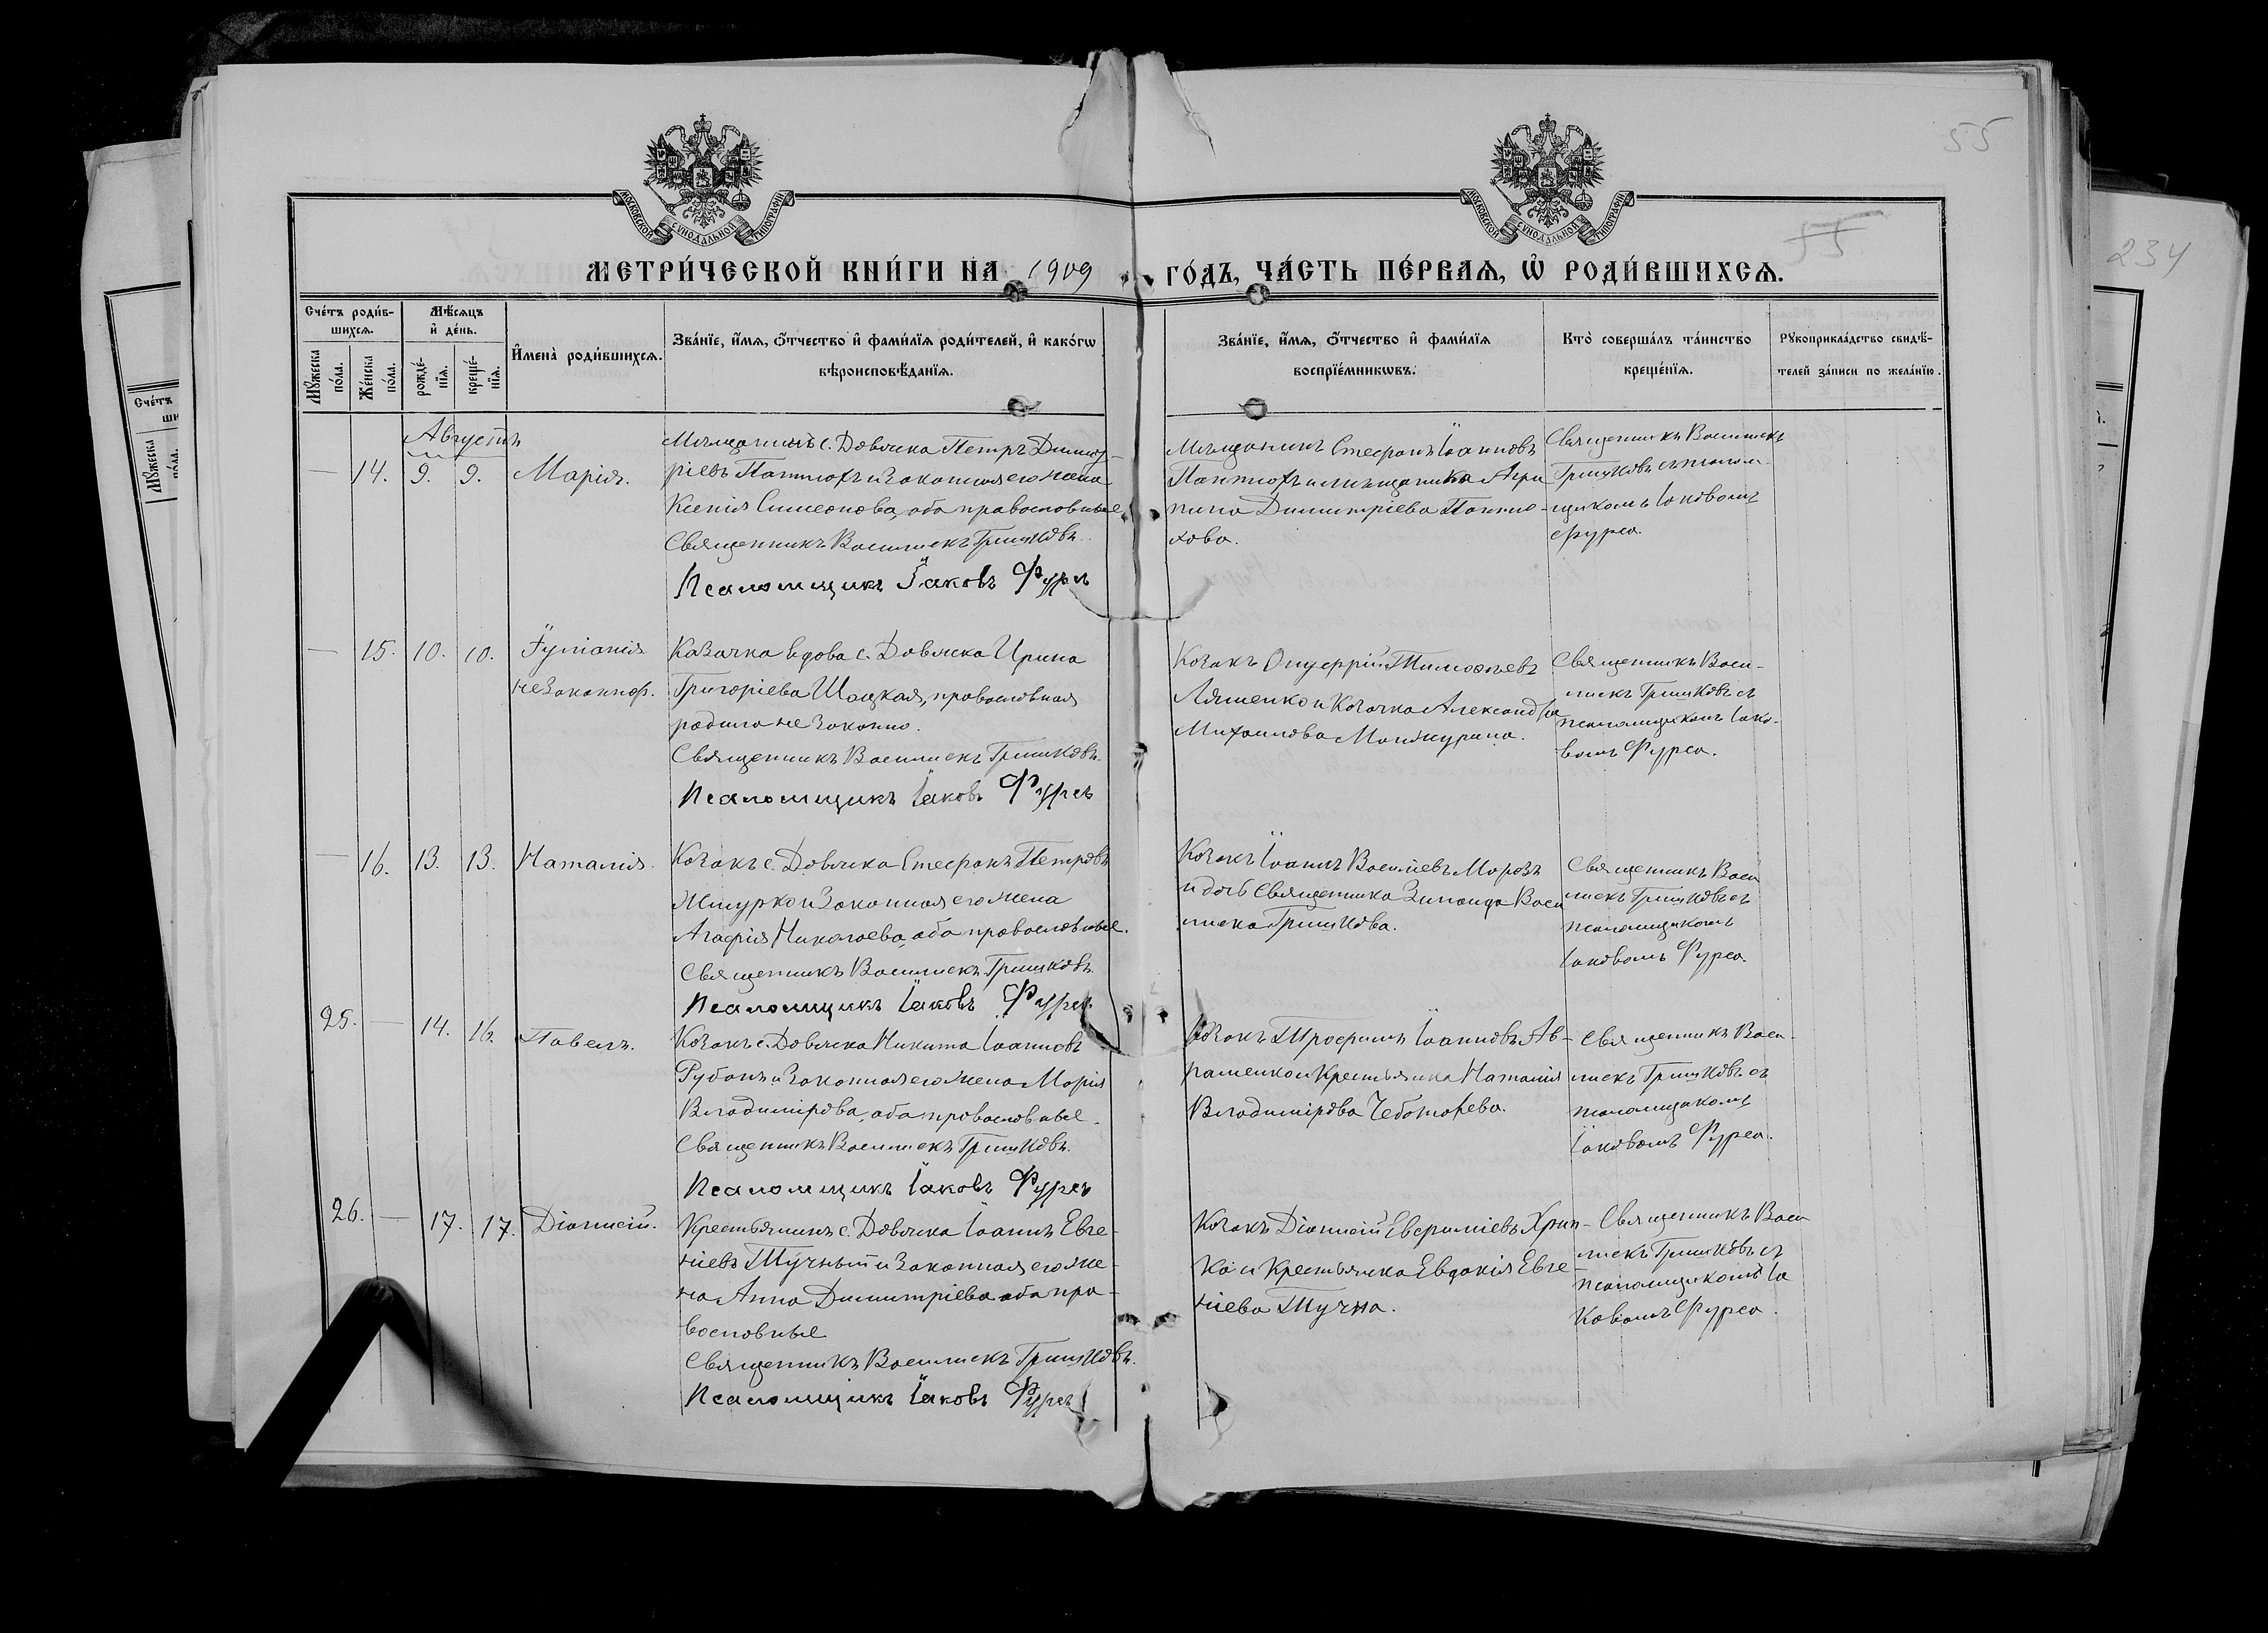 55
55
234
МОСКОВСКОЙ СѴНОДАЛЬНОЙ ТИПОГРАФІИ
МОСКОВСКОЙ СѴНОДАЛЬНОЙ ТИПОГРАФІИ
МЕТРИ́ЧЕСКОЙ КНИ́ГИ НА 1909 ГО́ДЪ, ЧА́СТЬ ПЕ́РВАѦ, Ѡ҆ РОДИ́ВШИХСѦ.
Сче́тъ роди́в-
шихсѧ.
Мꙋ́жеска по́ла.
Же́нска по́ла.
Мѣ́сѧцъ
и҆ де́нь.
рожде́-
нїѧ.
креще́-
нїѧ.
И҆мена̀ роди́вшихсѧ.
Зва́нїе, и҆́мѧ, ѻ҆́тчество и҆ фами́лїѧ роди́телей, и҆ како́гѡ
вѣроисповѣ́данїѧ.
Зва́нїе, и҆́мѧ, ѻ҆́тчество и҆ фами́лїѧ
воспрїе́мникѡвъ.
Кто̀ соверша́лъ та́инство
креще́нїѧ.
Рꙋкоприкла́дство свидѣ́-
телей за́писи по жела́нїю.
Августъ
— 14. 9. 9. Марія.
Мѣщанинъ с. Довжика Петръ Димит-
ріевъ Пантюхъ и законная его жена
Ксенія Симеонова, оба православные
Священникъ Василискъ Гришковъ.
Псаломщикъ Іаковъ Фурсъ
Мѣщанинъ Стефанъ Іоанновъ
Пантюхъ и мѣщанка Агри
пина Димитріева Пантю-
хова.
Священникъ Василискъ
Гришковъ съ псалом-
щикомъ Іаковомъ
Фурса.
— 15. 10. 10. Іуліанія
незаконнор.
Казачка вдова с. Довжика Ирина
Григоріева Шацкая, православная
родила не законно.
Священникъ Василискъ Гришковъ.
Псаломщикъ Іаковъ Фурсъ
Козакъ Онуфрій Тимоѳеевъ
Ляшенко и козачка Александра
Михаилова Манжурина.
Священникъ Васи-
лискъ Гришковъ съ
псаломщикомъ Іако-
вомъ Фурса.
— 16. 13. 13. Наталія.
Козакъ с. Довжика Стефанъ Петровъ
Жмурко и законная его жена
Агафія Николаева, оба православные.
Священникъ Василискъ Гришковъ.
Псаломщикъ Іаковъ Фурсъ
Козакъ Іоаннъ Василіевъ Морозъ
и дочь священника Зинаида Васи
лиска Гришкова.
Священникъ Васи
лискъ Гришковъ съ
псаломщикомъ
Іаковомъ Фурса.
25. — 14. 16. Павелъ.
Козакъ с. Довжика Никита Іоанновъ
Рубанъ и законная его жена Марія
Владимірова, оба православные.
Священникъ Василискъ Гришковъ.
Псаломщикъ Іаковъ Фурсъ
Козакъ Трофимъ Іоанновъ Ав-
раменко и крестьянка Наталія
Владимірова Чеботарева.
Священникъ Васи-
лискъ Гришковъ съ
псаломщикомъ
Іаковомъ Фурса.
26. — 17. 17. Діонисій.
Крестьянинъ с. Довжика Іоаннъ Евге-
ніевъ Тучный и законная его же-
на Анна Димитріева оба пра-
вославные
Священникъ Василискъ Гришковъ.
Псаломщикъ Іаковъ Фурсъ
Козакъ Діонисій Евфиміевъ Хрип-
ко и крестьянка Евдокія Евге-
ніева Тучна.
Священникъ Васи
лискъ Гришковъ съ
псаломщикомъ Іа
ковомъ Фурса.